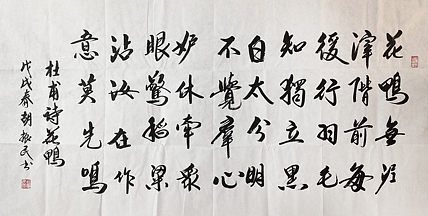 花鴨無泥
滓階前每
緩行羽毛
知獨立黑
白太分明
不覺群心
妒休牽衆
眼驚稻粱
沾汝在作
意莫先鳴
杜甫诗花鴨
戊戌春胡振民书